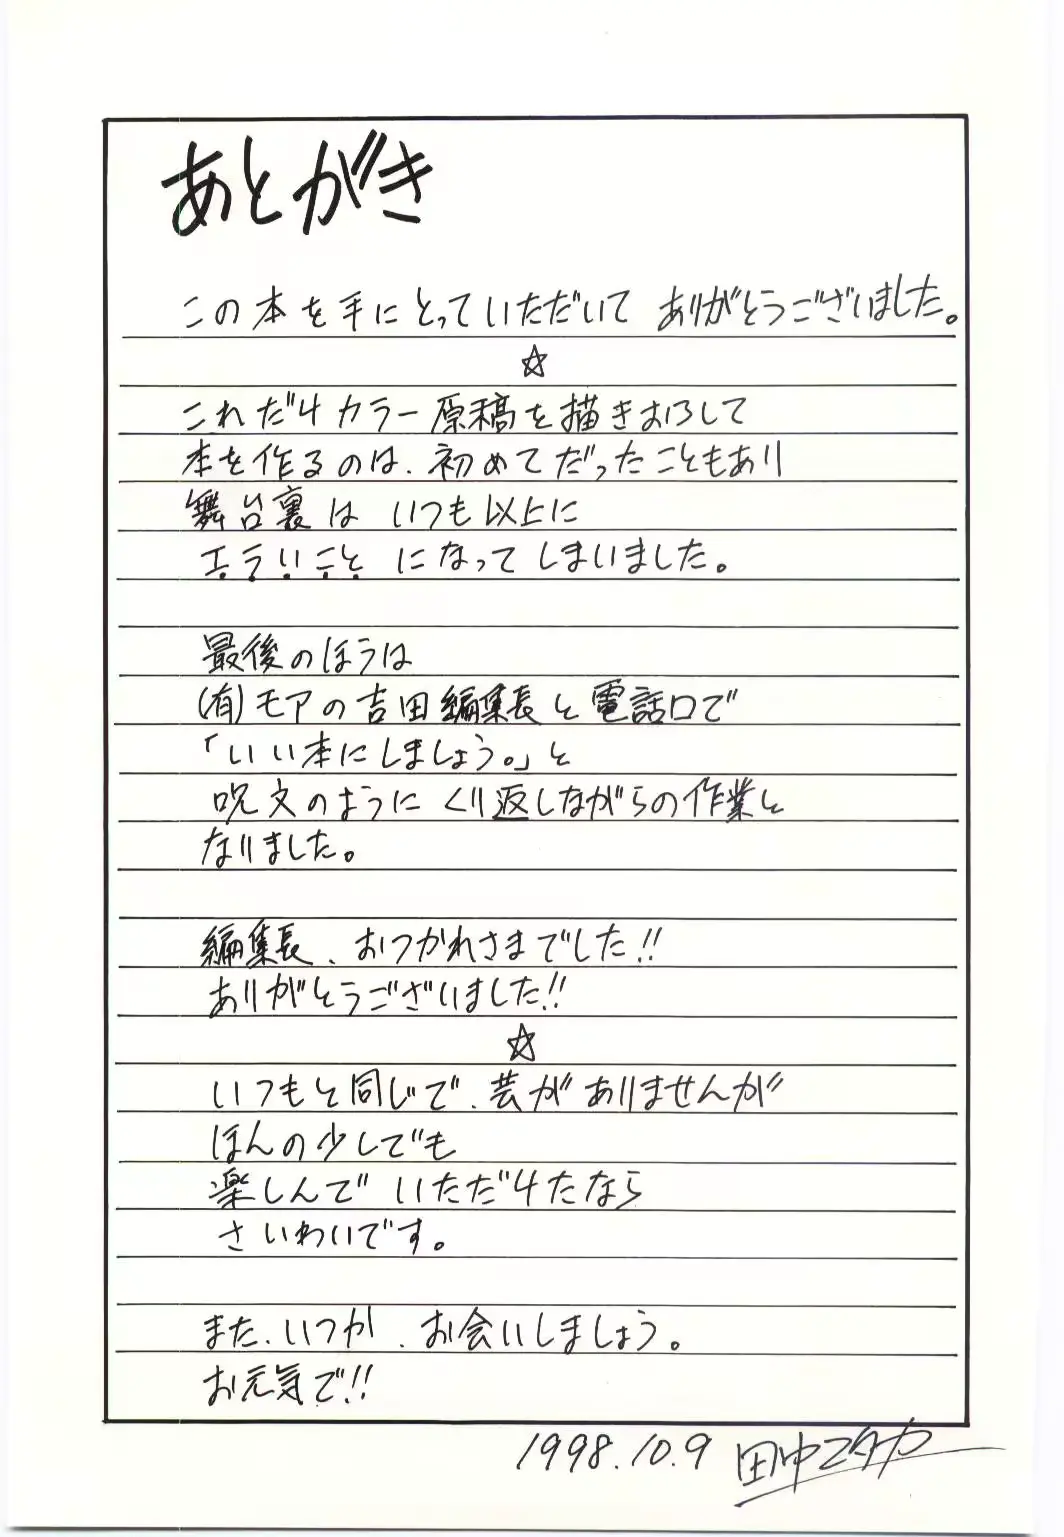 あとがき
この本を手にとっていただいて ありがとうございました。
☆
これだけカラー原稿を描きおろして
本を作るのは、初めてだったこともあり
舞台裏は いつも以上に
エライこと になってしまいました。
最後のほうは
(有)モアの吉田編集長と電話口で
「いい本にしましょう。」と
呪文のように くり返しながらの作業と
なりました。
編集長、おつかれさまでした!!
ありがとうございました!!
☆
いつもと同じで、芸がありませんが
ほんの少しでも
楽しんで いただけたなら
さいわいです。
また、いつか、お会いしましょう。
お元気で!!
1998.10.9 田中ユタカ